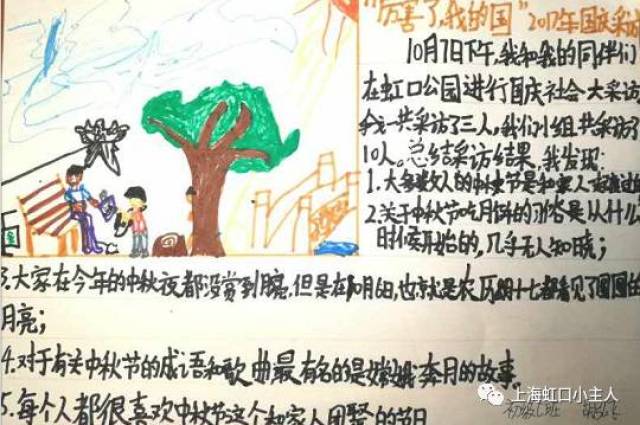 "厉害了，我的国"2017年国庆采访
10月7日下午，我和我的同伴们
在虹口公园进行国庆社会大采访
我一共采访了三人，我们小组共采访了
10人。总结采访结果，我发现：
1.大多数人的中秋节是和家人一起度过的
2.关于中秋节吃月饼的习俗是从什么
时候开始的，几乎无人知晓；
3.大家在今年的中秋夜都没赏到月亮，但是在10月6日，也就是农历十七都看见了圆圆的
月亮；
4.对于有关中秋节的成语和歌曲最有名的是嫦娥奔月的故事
5.每个人都很喜欢中秋节这个和家人团聚的节日
上海虹口小主人